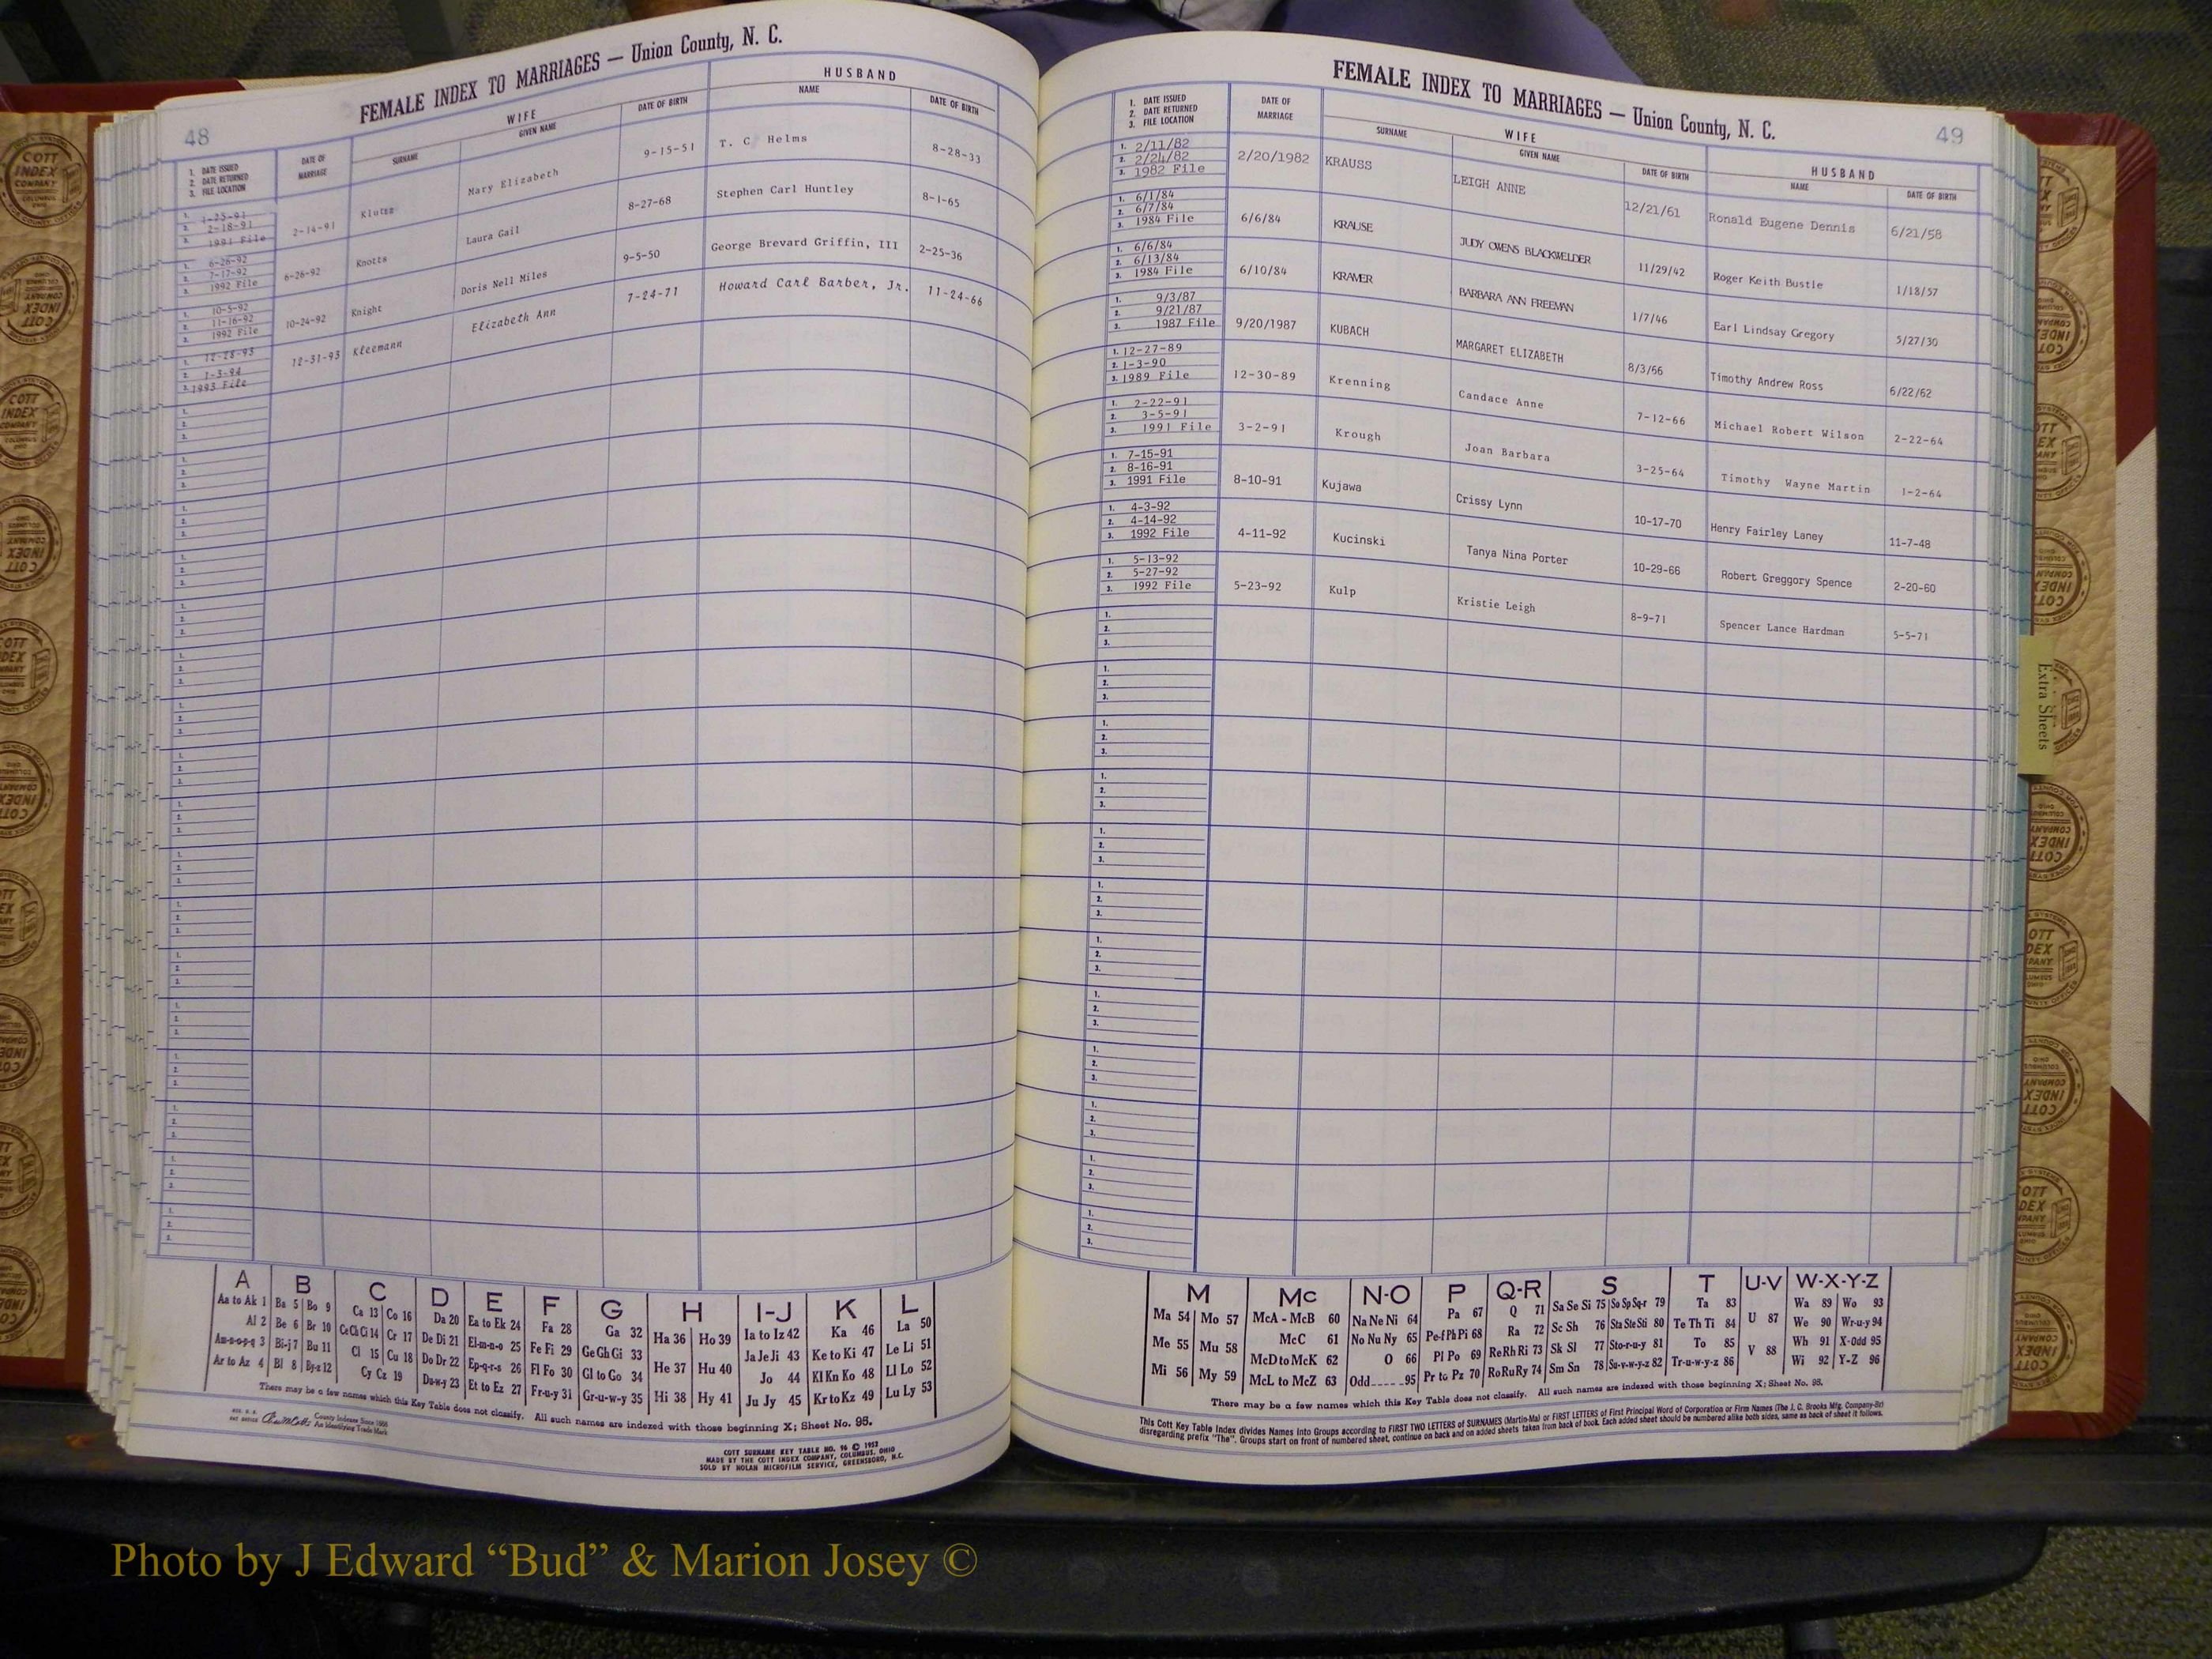 48
FEMALE INDEX TO MARRIAGES — Union County, N. C.
1. DATE ISSUED
2. DATE RETURNED
3. FILE LOCATION
DATE OF MARRIAGE
WIFE
SURNAME
GIVEN NAME
DATE OF BIRTH
HUSBAND
NAME
DATE OF BIRTH
1. 1-25-91
2. 2-18-91
3. 1991 File
2-14-91 Klutzz Mary Elizabeth 9-15-51 T. C Helms 8-28-33
1. 6-26-92
2. 7-17-92
3. 1992 File
6-26-92 Knotts Laura Gail 8-27-68 Stephen Carl Huntley 8-1-65
1. 10-5-92
2. 11-16-92
3. 1992 File
10-24-92 Knight Doris Nell Miles 9-5-50 George Brevard Griffin, III 2-25-36
1. 12-28-93
2. 1-3-94
3. 1993 File
12-31-93 Kleemann Elizabeth Ann 7-24-71 Howard Carl Barber, Jr. 11-24-66
A B C D E F G H I-J K L
Aa to Ak 1 Ba 5 Bo 9 Ca 13 Co 16 Da 20 Ea to Ek 24 Fa 28 Ga 32 Ha 36 Ho 39 Ia to Iz 42 Ka 46 La 50
Al 2 Be 6 Br 10 Ce Ch Ci 14 Cr 17 De Di 21 El-m-n-o 25 Fe Fi 29 Ge Gh Gi 33 He 37 Hu 40 Ja Je Ji 43 Ke to Ki 47 Le Li 51
Am-n-o-p-q 3 Bi-j 7 Bu 11 Cl 15 Cu 18 Do Dr 22 Ep-q-r-s 26 Fl Fo 30 Gl to Go 34 Hi 38 Hy 41 Jo 44 Kl Kn Ko 48 Ll Lo 52
Ar to Az 4 Bl 8 By-z 12 Cy Cz 19 Du-w-y 23 Et to Ez 27 Fr-u-y 31 Gr-u-w-y 35 Ju Jy 45 Kr to Kz 49 Lu Ly 53
There may be a few names which this Key Table does not classify. All such names are indexed with those beginning X; Sheet No. 95.
County Indexes Since 1888
An Identifying Trade Mark
COTT SURNAME KEY TABLE NO. 96 © 1952
MADE BY THE COTT INDEX COMPANY, COLUMBUS, OHIO
SOLD BY NOLAN MICROFILM SERVICE, GREENSBORO, N.C.
FEMALE INDEX TO MARRIAGES — Union County, N. C.
49
1. DATE ISSUED
2. DATE RETURNED
3. FILE LOCATION
DATE OF MARRIAGE
WIFE
SURNAME
GIVEN NAME
DATE OF BIRTH
HUSBAND
NAME
DATE OF BIRTH
1. 2/11/82
2. 2/24/82
3. 1982 File
2/20/1982 KRAUSS LEIGH ANNE 12/21/61 Ronald Eugene Dennis 6/21/58
1. 6/1/84
2. 6/7/84
3. 1984 File
6/6/84 KRAUSE JUDY OWENS BLACKWELDER 11/29/42 Roger Keith Bustle 1/18/57
1. 6/6/84
2. 6/13/84
3. 1984 File
6/10/84 KRAMER BARBARA ANN FREEMAN 1/7/46 Earl Lindsay Gregory 5/27/30
1. 9/3/87
2. 9/21/87
3. 1987 File
9/20/1987 KUBACH MARGARET ELIZABETH 8/3/66 Timothy Andrew Ross 6/22/62
1. 12-27-89
2. 1-3-90
3. 1989 File
12-30-89 Krenning Candace Anne 7-12-66 Michael Robert Wilson 2-22-64
1. 2-22-91
2. 3-5-91
3. 1991 File
3-2-91 Krough Joan Barbara 3-25-64 Timothy Wayne Martin 1-2-64
1. 7-15-91
2. 8-16-91
3. 1991 File
8-10-91 Kujawa Crissy Lynn 10-17-70 Henry Fairley Laney 11-7-48
1. 4-3-92
2. 4-14-92
3. 1992 File
4-11-92 Kucinski Tanya Nina Porter 10-29-66 Robert Greggory Spence 2-20-60
1. 5-13-92
2. 5-27-92
3. 1992 File
5-23-92 Kulp Kristie Leigh 8-9-71 Spencer Lance Hardman 5-5-71
Extra Sheets
M Mc N-O P Q-R S T U-V W-X-Y-Z
Ma 54 Mo 57 McA - McB 60 Na Ne Ni 64 Pa 67 Q 71 Sa Se Si 75 So Sp Sq-r 79 Ta 83 U 87 Wa 89 Wo 93
Me 55 Mu 58 McC 61 No Nu Ny 65 Pe-f Ph Pi 68 Ra 72 Sc Sh 76 Sta Ste Sti 80 Te Th Ti 84 V 88 We 90 Wr-u-y 94
Mi 56 My 59 McD to McK 62 O 66 Pl Po 69 Re Rh Ri 73 Sk Sl 77 Sto-r-u-y 81 To 85 Wh 91 X-Odd 95
McL to McZ 63 Odd 95 Pr to Pz 70 Ro Ru Ry 74 Sm Sn 78 Su-v-w-y-z 82 Tr-u-w-y-z 86 Wi 92 Y-Z 96
There may be a few names which this Key Table does not classify. All such names are indexed with those beginning X; Sheet No. 95.
This Cott Key Table Index divides Names into Groups according to FIRST TWO LETTERS of SURNAMES (Martin-Ma) or FIRST LETTERS of First Principal Word of Corporation or Firm Names (The J. C. Brooks Mfg. Company-Br)
disregarding prefix "The". Groups start on front of numbered sheet, continue on back and on added sheets taken from back of book. Each added sheet should be numbered alike both sides, same as back of sheet it follows.
Photo by J Edward “Bud” & Marion Josey ©